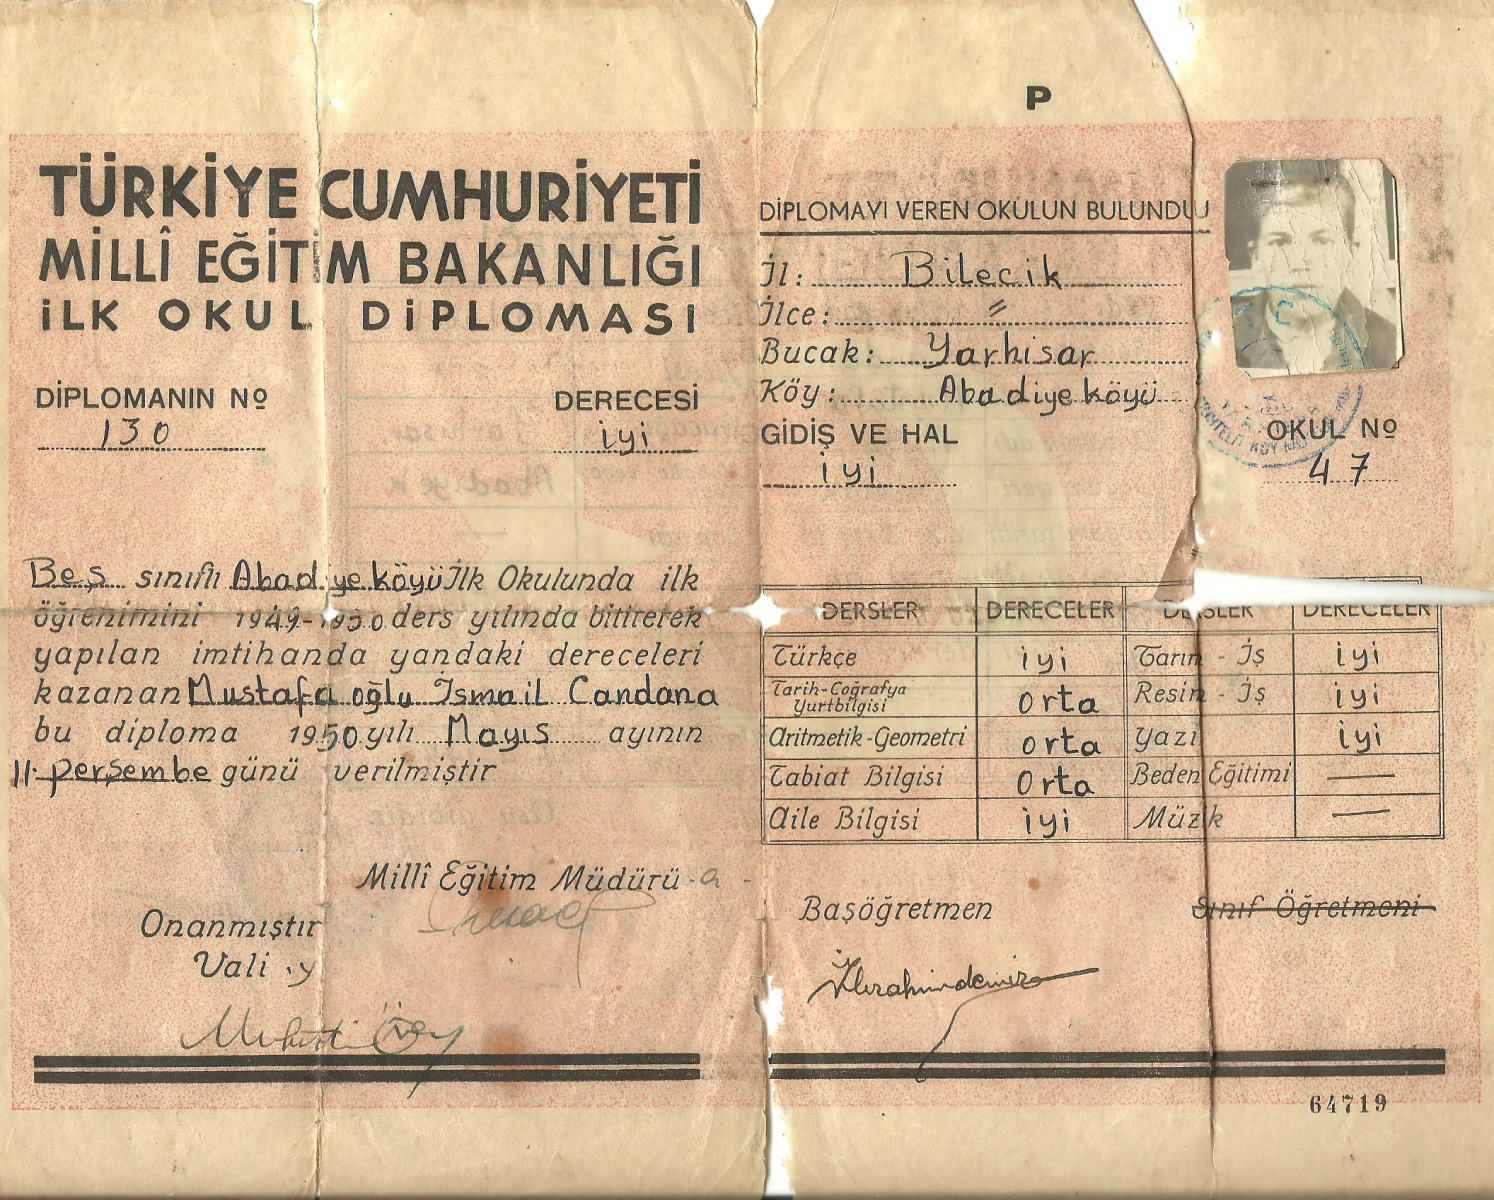 P
TÜRKİYE CUMHURİYETİ
MİLLÎ EĞİTİM BAKANLIĞI
İLK OKUL DİPLOMASI
DİPLOMANIN Nº
130
DERECESİ
iyi
Beş sınıflı Abadiye köyü İlk Okulunda ilk
öğrenimini 1949-1950 ders yılında bitirerek
yapılan imtihanda yandaki dereceleri
kazanan Mustafa oğlu İsmail Candana
bu diploma 1950 yılı Mayıs ayının
11. perşembe günü verilmiştir
Millî Eğitim Müdürü
Onanmıştır
Vali
DİPLOMAYI VEREN OKULUN BULUNDU
İl: Bilecik
İlce: "
Bucak: Yarhisar
Köy: Abadiye köyü
GİDİŞ VE HAL
iyi
OKUL Nº
47
DERSLER DERECELER DERSLER DERECELER
Türkçe iyi Tarım - İş iyi
Tarih-Coğrafya
Yurtbilgisi orta Resim - İş iyi
Aritmetik-Geometri orta Yazı iyi
Tabiat Bilgisi Orta Beden Eğitimi —
Aile Bilgisi iyi Müzik —
Başöğretmen Sınıf Öğretmeni
İbrahim demir
64719